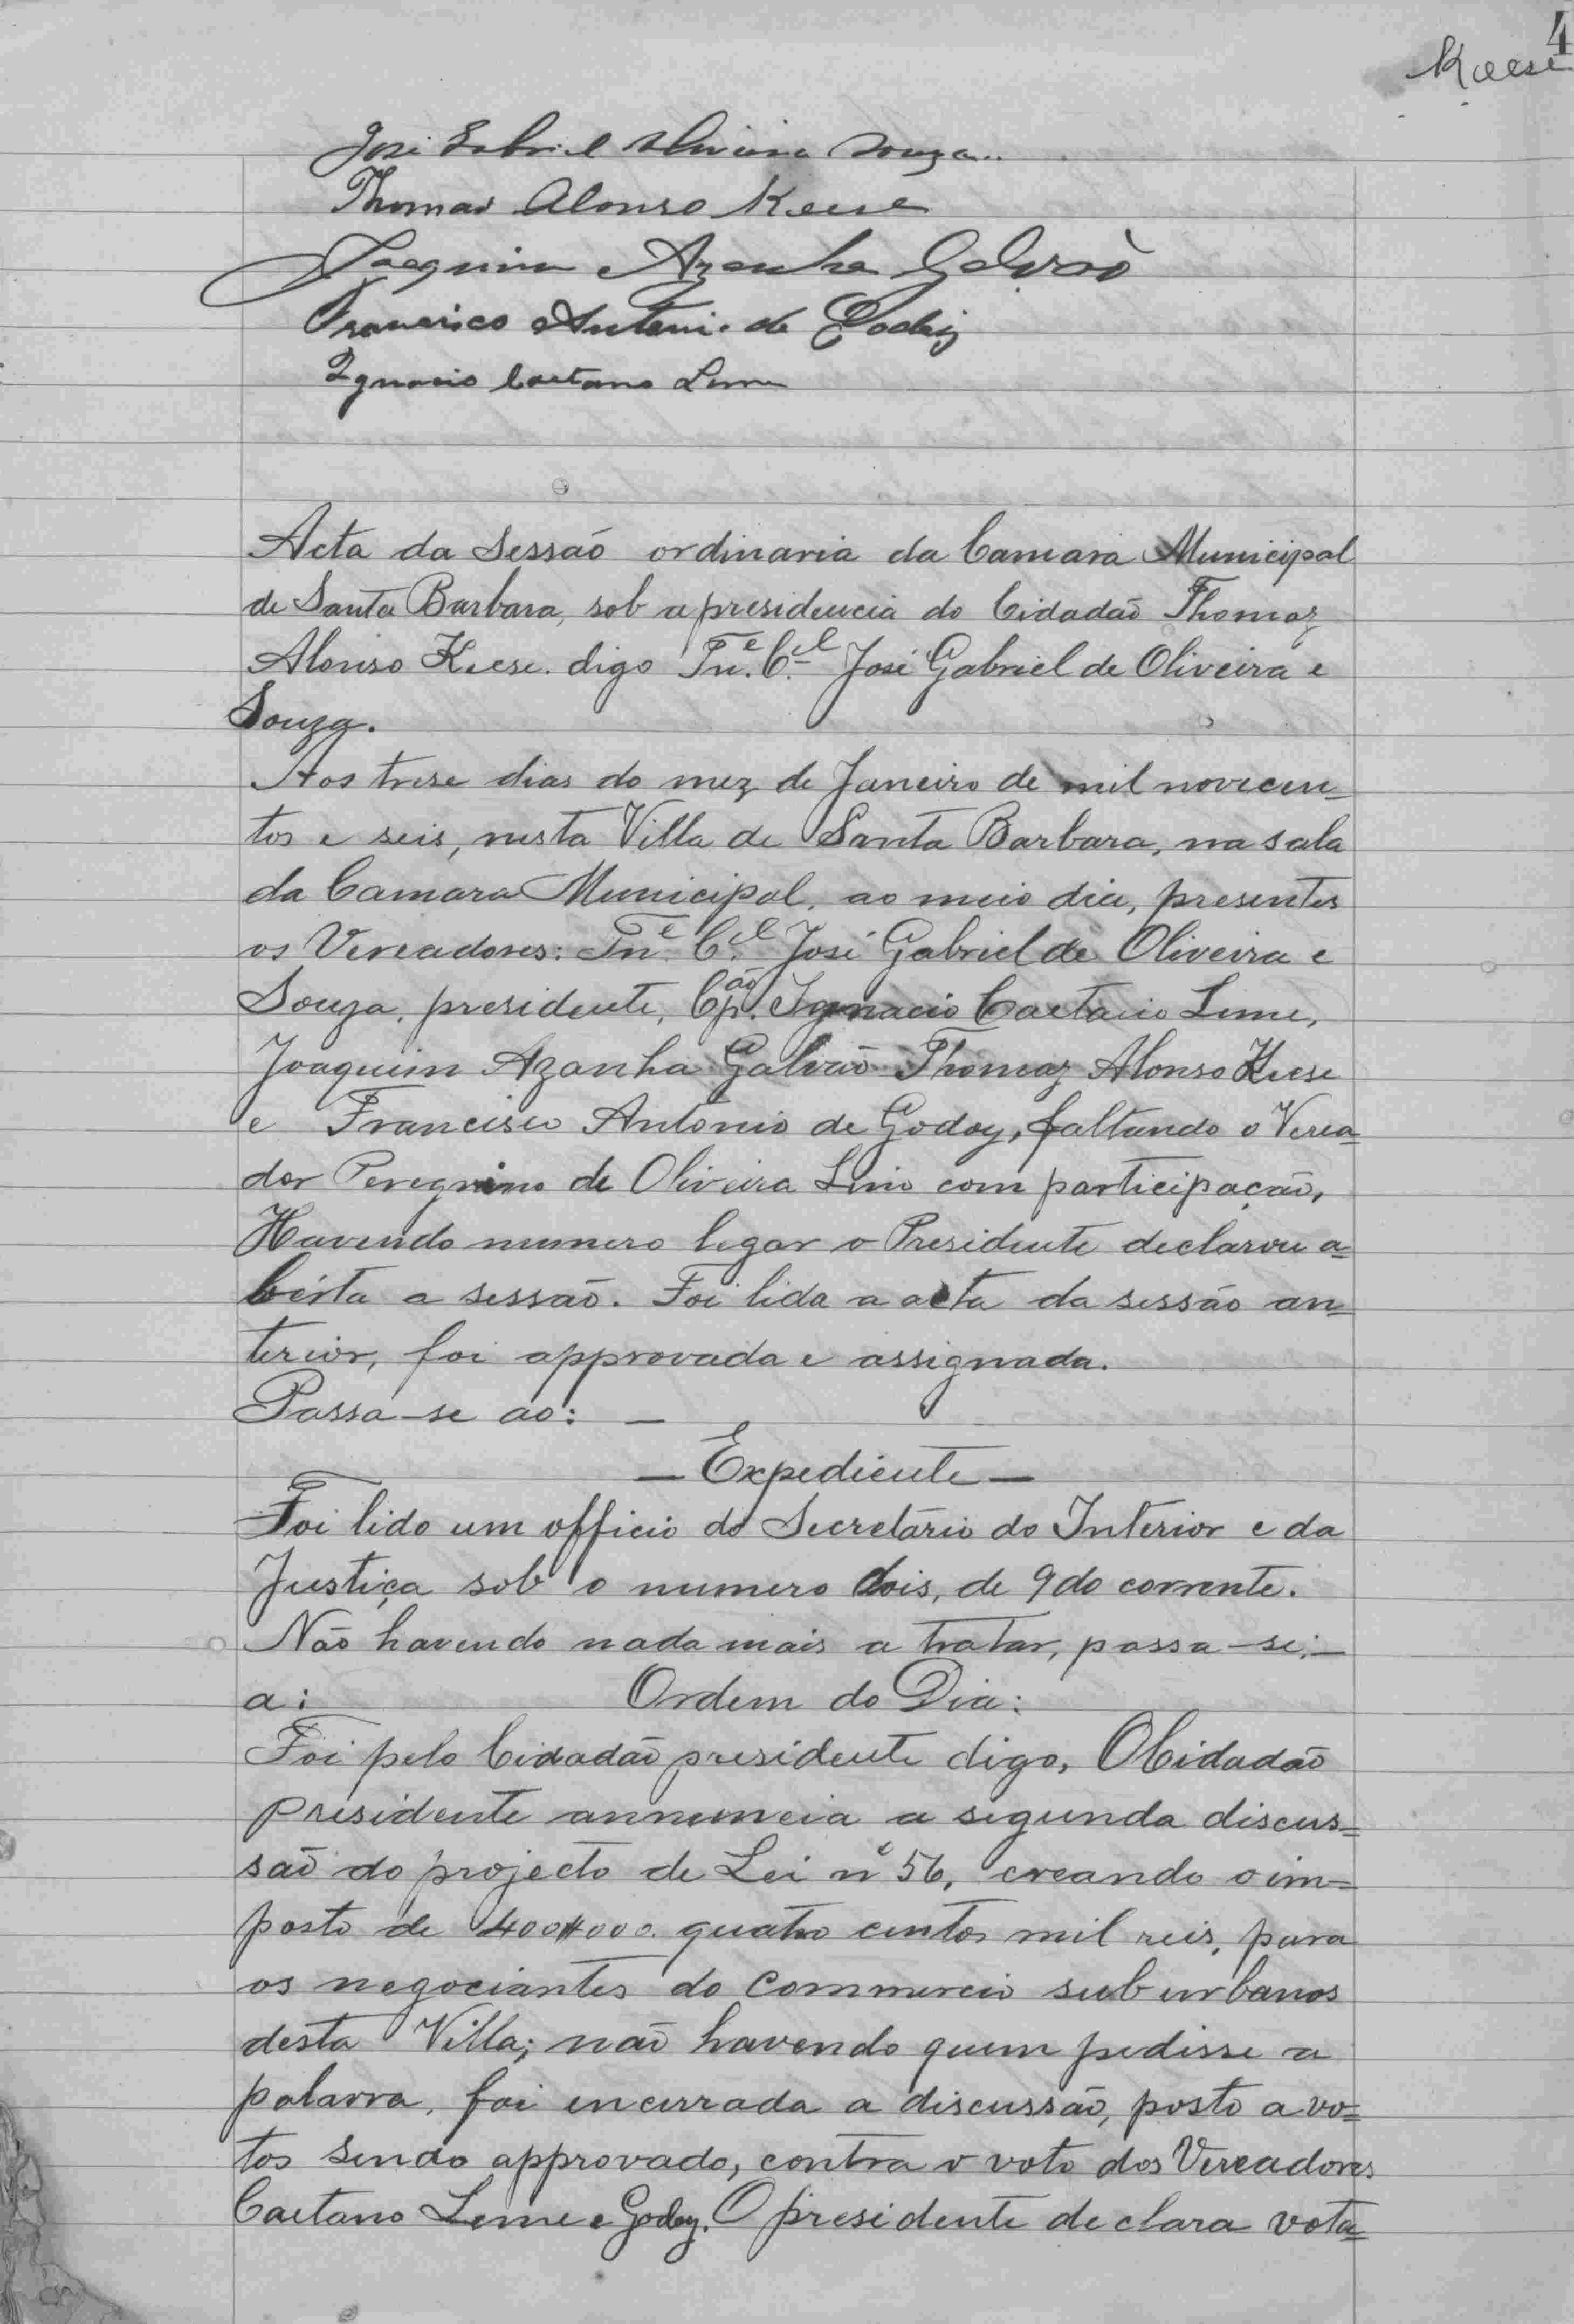 4
Keese
José Gabriel Oliveira Souza
Thomas Alonso Keese
Joaquim Azanha Galvão
Francisco Antonio de Godoy
Ignacio Caetano Leme
Acta da Sessão ordinaria da Camara Municipal
de Santa Barbara, sob a presidencia do Cidadão Thomaz
Alonso Keese. digo Tn.e C.el José Gabriel de Oliveira e
Souza.
Aos trese dias do mez de Janeiro de mil novecen-
tos e seis, nesta Villa de Santa Barbara, na sala
da Camara Municipal, ao meio dia, presentes
os Vereadores: Tn.e C.el José Gabriel de Oliveira e
Souza, presidente, Cp.ão Ignacio Caetano Leme,
Joaquim Azanha Galvão Thomaz Alonso Keese
e Francisco Antonio de Godoy, faltando o Verea=
dor Peregrino de Oliveira Lino com participação,
Havendo numero legar o Presidente declarou a=
berta a sessão. Foi lida a acta da sessão an=
terior, foi approvada e assignada.
Passa-se ao: —
— Expediente —
Foi lido um officio do Secretario do Interior e da
Justiça sob o numero dois, de 9 do corrente.
Não havendo nada mais a tratar, passa-se:—
a: Ordem do Dia:
Foi pelo Cidadão presidente digo, O Cidadão
presidente annuncia a segunda discus=
são do projecto de Lei nº 56, creando o im=
posto de 400#000. quatro centos mil reis, para
os negociantes do commercio sub urbanos
desta Villa; não havendo quem pedisse a
palavra, foi encerrada a discussão, posto a vo=
tos sendo approvado, contra o voto dos Vereadores
Caetano Leme e Godoy. O presidente declara vota=